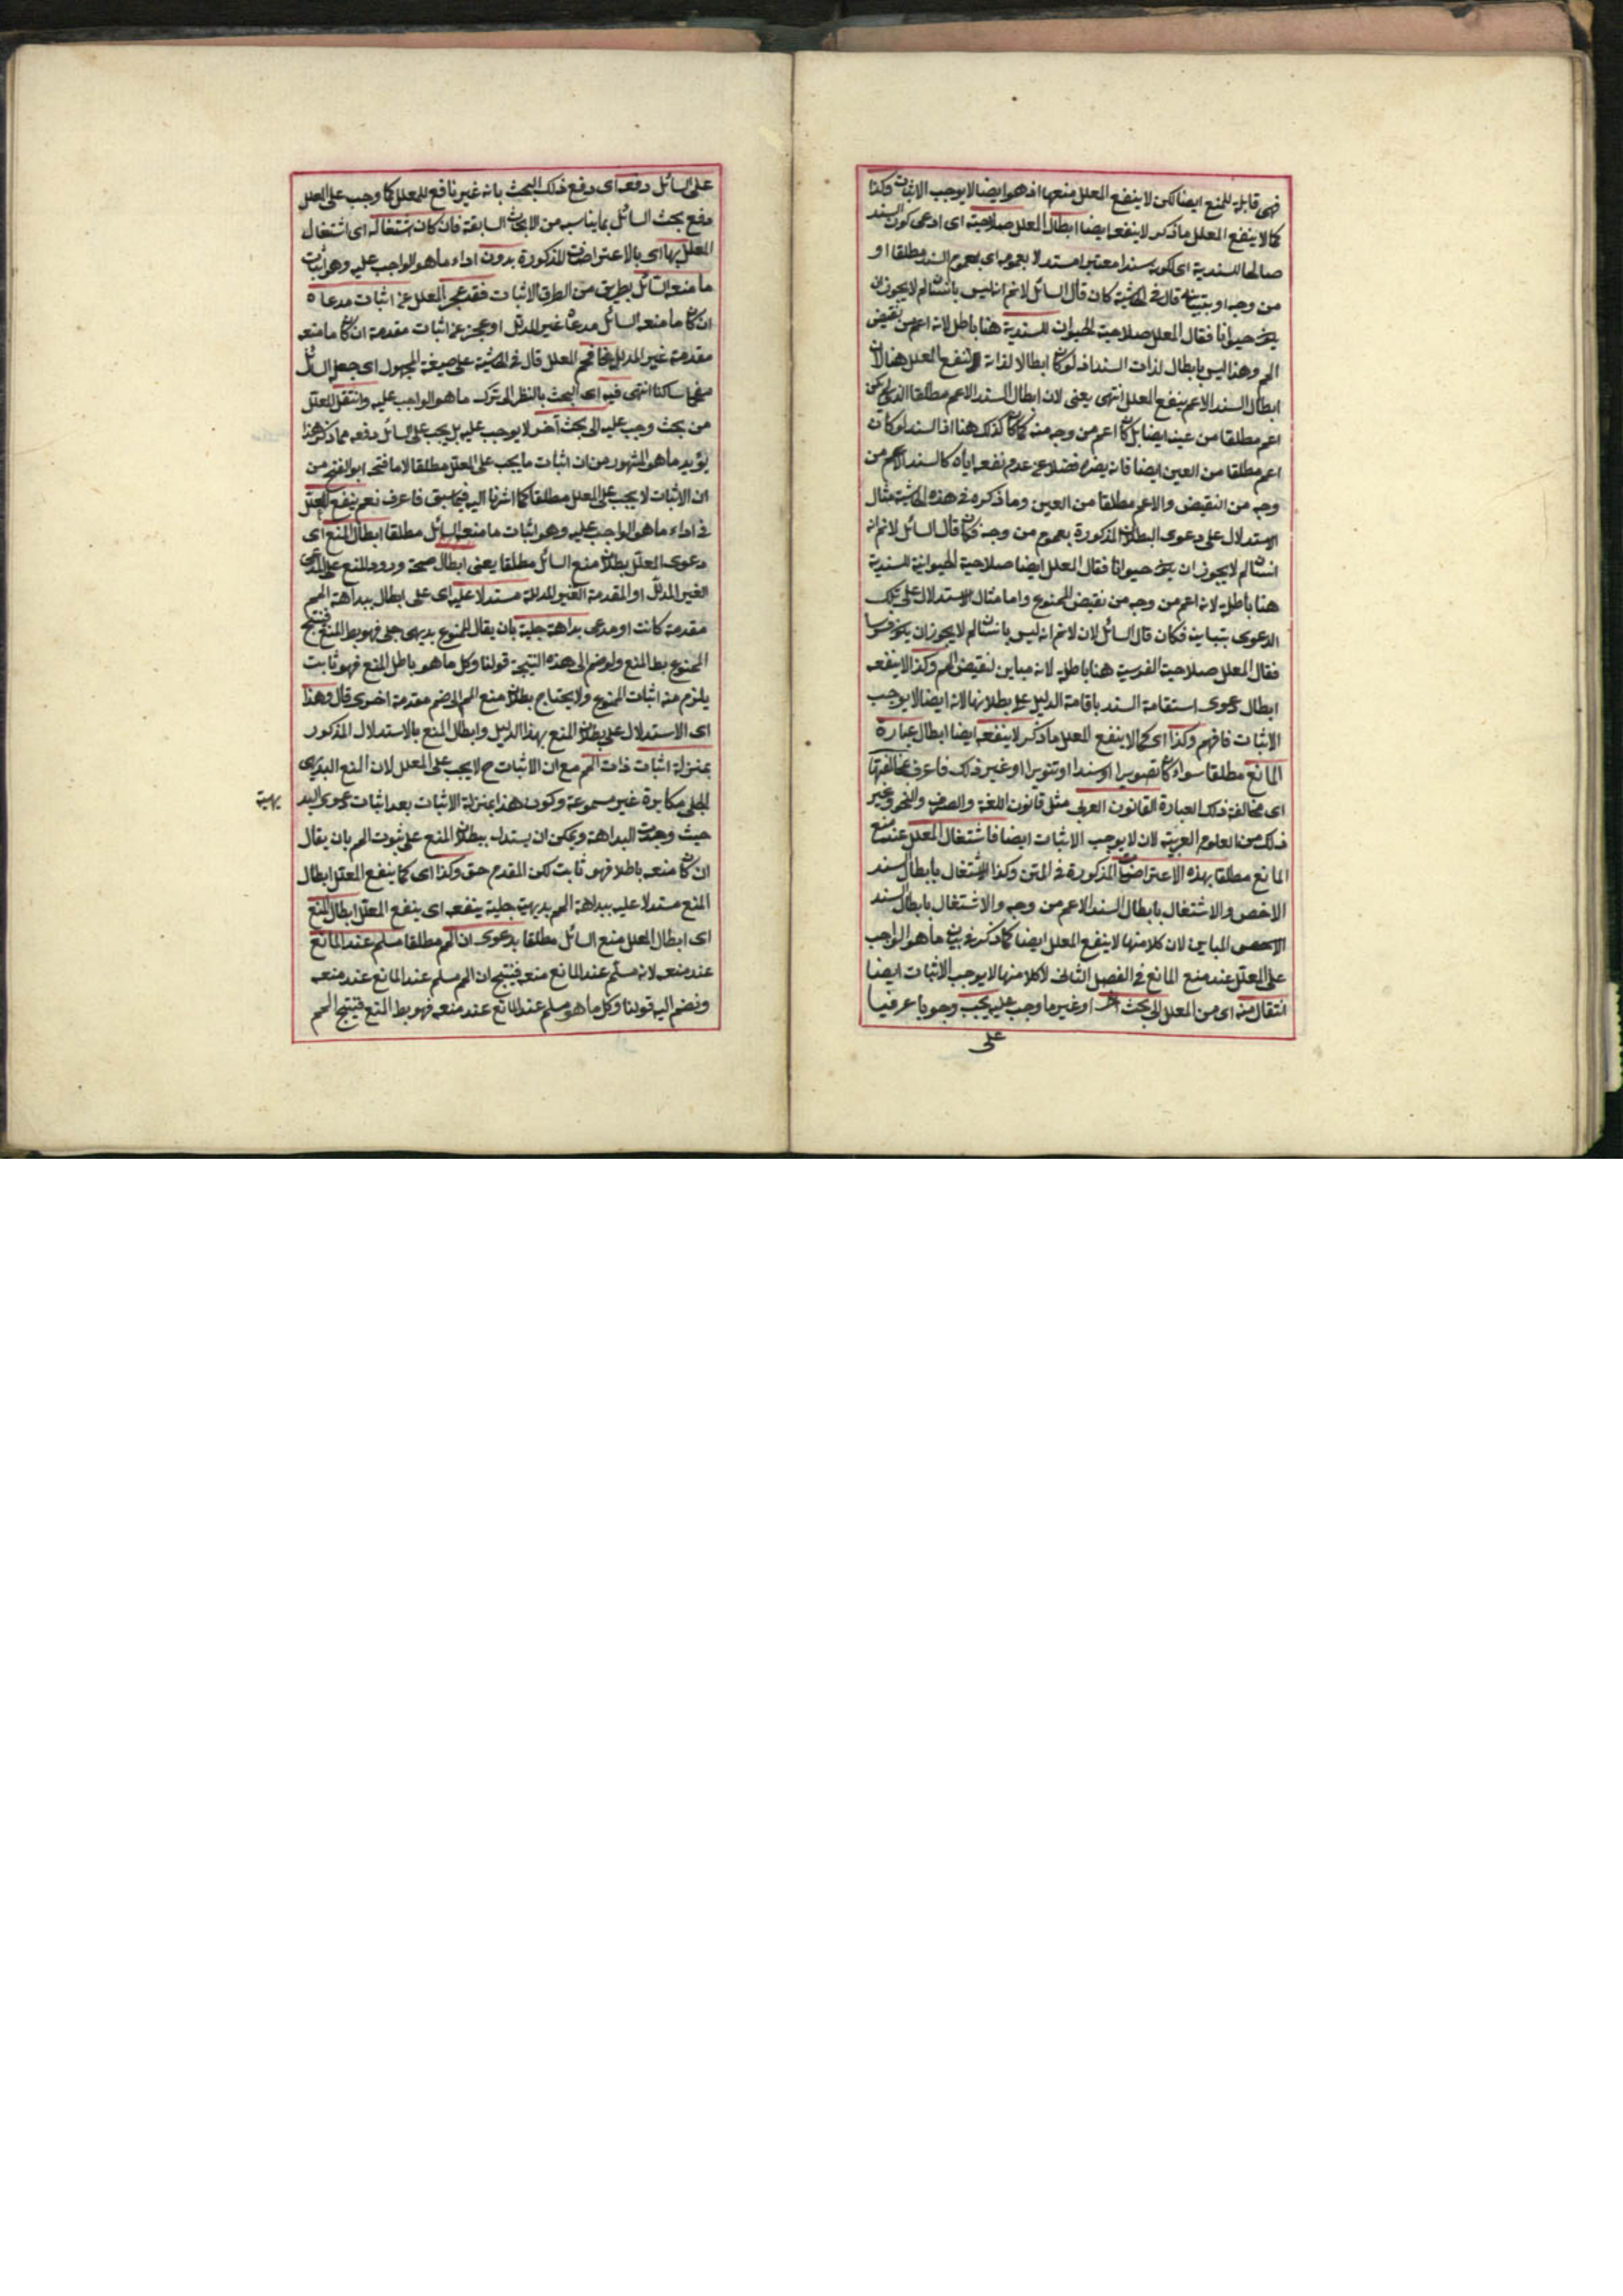 فهى قابلة للمنع ايضا لكن لا ينفع المعلل منعها اذ هو ايضا لا يوجب الاثبات وكذا
كما لا ينفع المعلل ما ذكر لا ينفعه ايضا ابطال المعلل صلاحيته اى ادعى كون السند
صالحا للسندية اى لكونه سندا معتبرا مستدلا بعمومه اى بعموم السند مطلقا او
من وجه او بتباينه قال فى الحاشية كان قال السائل لا نم انه ليس بانسان لم لا يجوز ان
يكون حيوانا فقال المعلل صلاحية الحيوان للسندية هنا باطل لانه اعم من نقيض
المم وهذا ليس بابطال لذات السند اذ لو كان ابطالا لذاته لنفع المعلل هنا لان
ابطال السند الاعم ينفع المعلل انتهى يعنى لان ابطال السند الاعم مطلقا الذى لم يكن
اعم مطلقا من عينه ايضا بل كان اعم من وجه منه كما كان كذلك هنا اذ السند لو كان
اعم مطلقا من العين ايضا فانه يضره فضلا عن عدم نفعه اياه كالسند الاعم من
وجه من النقيض والاعم مطلقا من العين وما ذكره فى هذه الحاشية مثال
الاستدلال على دعوى البطلان المذكورة بعموم من وجه فكان قال السائل لا نم انه
انسان لم لا يجوز ان يكون حيوانا فقال المعلل ايضا صلاحية الحيوانية للسندية
هنا باطلة لانه اعم من وجه من نقيض الممنوع واما مثال الاستدلال على تلك
الدعوى بتباينه فكان قال السائل لان لا نم انه ليس بانسان لم لا يجوز ان يكون فرسا
فقال المعلل صلاحية الفرسية هنا باطلة لانه مباين لنقيض المم وكذا لا ينفعه
ابطال دعوى استقامة السند باقامة الدليل على بطلانها لانه ايضا لا يوجب
الاثبات فافهم وكذا اى كما لا ينفع المعلل ما ذكر لا ينفعه ايضا ابطال عبارة
المانع مطلقا سواء كان تصويرا او سندا او تنويرا او غير ذلك فاعرف بمخالفتها
اى مخالفة ذلك العبارة القانون العربى مثل قانون اللغة والصرف والنحو وغير
ذلك من العلوم العربية لان لا يوجب الاثبات ايضا فاشتغال المعلل عند منع
المانع مطلقا بهذه الاعتراضات المذكورة فى المتن وكذا الاشتغال بابطال سند
الاخص والاشتغال بابطال السند الاعم من وجه والاشتغال بابطال السند
المباين لان كلا منها لا ينفع المعلل ايضا كما ذكر فى بيان ما هو الواجب
على المعلل عند منع المانع فى الفصل الثانى لا كلا منها لا يوجب الاثبات ايضا
انتقال منه اى من المعلل الى بحث آخر او غير ما وجب عليه يجب وجوبا عرفيا
على
على السائل دفعه اى دفع ذلك البحث بانه غير نافع للمعلل كما وجب على المعلل
دفع بحث السائل بما يناسبه من الابحاث السابقة فان كان اشتغاله اى اشتغال
المعلل بها اى بالاعتراضات المذكورة بدون اداء ما هو الواجب عليه وهو اثبات
ما منعه السائل بطريق من الطرق الاثبات فقد عجز المعلل عن اثبات مدعاه
ان كان ما منعه السائل مدعاه غير المدلل او عجز عن اثبات مقدمة ان كان ما منعه
مقدمة غير المدلل فافحم المعلل قال فى الحاشية على صيغة المجهول اى جعل السائل
مفحما ساكتا انتهى فيه اى البحث بالنظر الى ترك ما هو الواجب عليه وانتقل المعلل
من بحث وجب عليه الى بحث آخر لا يوجب عليه بل يجب على السائل دفعه مما ذكر هذا
يؤيد ما هو المشهور من ان اثبات ما يجب على المعلل مطلقا لا ما فتحه ابو الفتح من
ان الاثبات لا يجب على المعلل مطلقا كما اشرنا اليه فيما سبق فاعرف نعم ينفع المعلل
فى اداء ما هو الواجب عليه وهو اثبات ما منعه السائل مطلقا ابطال المنع اى
دعوى المعلل بطلان منع السائل مطلقا يعنى ابطال صحة ورود المنع على المدعى
الغير المدلل او المقدمة الغير المدللة مستدلا عليه اى على ابطال ببداهة المم
مقدمة كانت او مدعى بداهة جلية بان يقال الممنوع بديهى جلى فهو بط المنع فينتج
الممنوع بط المنع ولو ضم الى هذه النتيجة قولنا وكل ما هو باطل المنع فهو ثابت
يلزم منه اثبات الممنوع ولا يحتاج بطلان منع المم الى ضم مقدمة اخرى قال وهذا
اى الاستدلال على بطلان المنع بهذا الدليل وابطال المنع بالاستدلال المذكور
بمنزلة اثبات ذات المم مع ان الاثبات ح لا يجب على المعلل لان المنع البديهى
الجلى مكابرة غير مسموعة وكون هذا بمنزلة الاثبات بعد اثبات دعوى البد
يهية
حيث وجدت البداهة ويمكن ان يستدل ببطلان المنع على ثبوت المم بان يقال
ان كان منعه باطلا فهو ثابت لكن المقدم حق وكذا اى كما ينفع المعلل ابطال
المنع مستدلا عليه ببداهة المم بديهية جلية ينفعه اى ينفع المعلل ابطال المنع
اى ابطال المعلل منع السائل مطلقا بدعوى ان المم مطلقا مسلم عند المانع
عند منعه لانه مسلم عند المانع منعه فينتج ان المم مسلم عند المانع عند منعه
ونضم اليه قولنا وكل ما هو مسلم عند المانع عند منعه فهو بط المنع فينتج المم